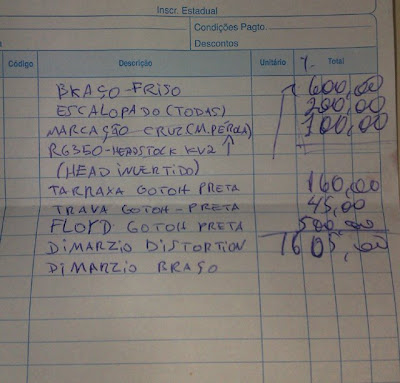 Inscr. Estadual
Condições Pagto.
Descontos
Código Descrição Unitário % Total
BRAÇO-FRISO 600,00
ESCALOPADO (TODAS) 200,00
MARCAÇÃO CRUZ (M.PÉROLA) 100,00
RG350-HEADSTOCK KV2
(HEAD INVERTIDO)
TARRAXA GOTOH PRETA 160,00
TRAVA GOTOH-PRETA 45,00
FLOYD GOTOH PRETA 500,00
DIMARZIO DISTORTION 1605,00
DIMARZIO BRAÇO